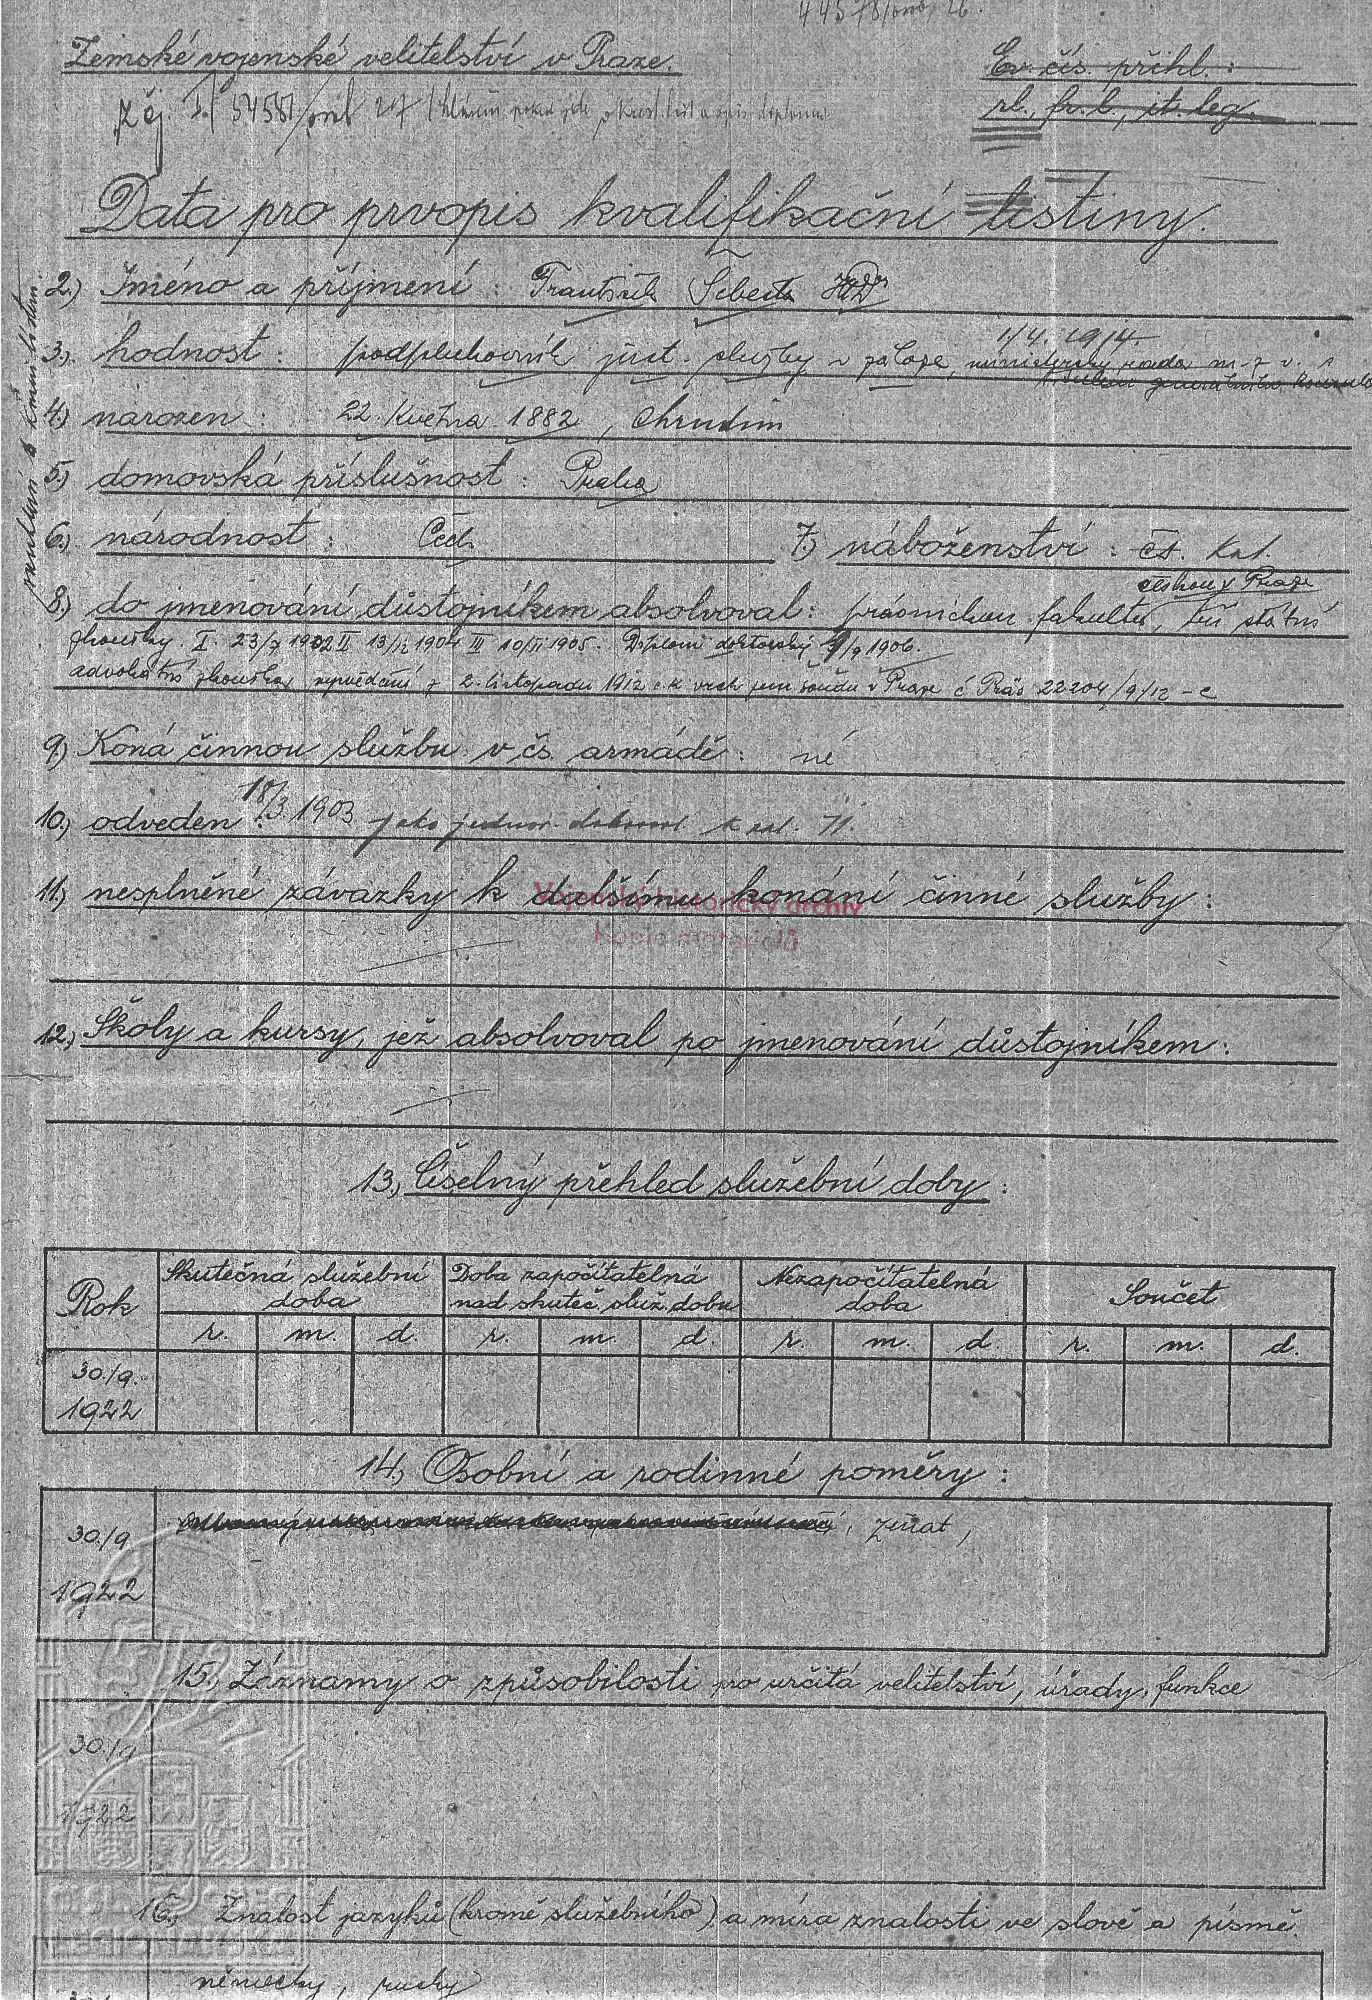 Zemské vojenské velitelství v Praze.
Ev. čís. přihl.:
rl., fr. l., it. leg.
Data pro prvopis kvalifikační listiny.
2.) Jméno a příjmení: František Šebesta JUDr
1/4. 1914.
3.) hodnost: podplukovník just. služby v záloze, rada m. z v.
4.) narozen: 22. Května 1882, Chrudim
5.) domovská příslušnost: Praha
6.) národnost: Čech
7.) náboženství: čs. kat.
českou v Praze
8.) do jmenování důstojníkem absolvoval: právnickou fakultu, tři státní
zkoušky. I. 23/7 1902 II 13/ 1904 III 10/ 1905. Diplom doktorský 9/9 1906.
advokátní zkouška, 2. listopadu 1912 c. k. vrch. soudu v Praze č Präs 22204/9/12 - c
9.) Koná činnou službu v čs. armádě: né
10.) odveden: 18/3 1903 jako jednor. dobrovol. 11.
11.) nesplněné závazky k dalšímu konání činné služby:
Vojenský historický archiv
12.) Školy a kursy, jež absolvoval po jmenování důstojníkem:
13.) Číselný přehled služební doby:
Rok
Skutečná služební doba
Doba započítatelná nad skuteč. služ. dobu
Nezapočítatelná doba
Součet
r. m. d. r. m. d. r. m. d. r. m. d.
30./9.
1922
14.) Osobní a rodinné poměry:
30./9
1922
, ženat,
15.) Záznamy o způsobilosti pro určitá velitelství, úřady, funkce
30./9
1922
16.) Znalost jazyků (kromě služebního) a míra znalosti ve slově a písmě.
německy, rusky